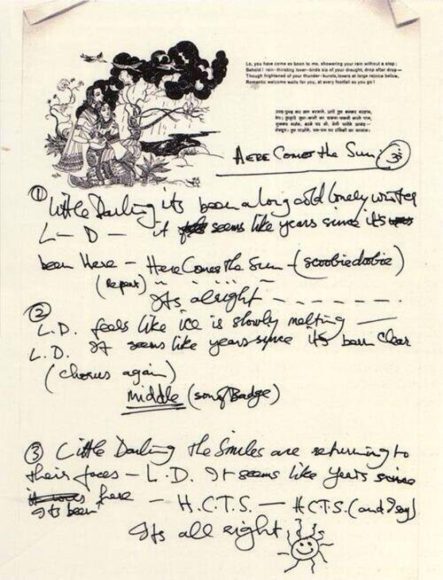 Lo, you have come as boon to me, showering your rain without a stop;
Behold! rain-thirsting lover-birds sip of your draught, drop after drop—
Though frightened of your thunder-bursts, lovers at large rejoice below,
Romantic welcome waits for you, at every footfall as you go!
Here Comes the Sun.
① Little Darling its been a long cold lonely winter
L — D — it seems like years since its
been here — Here Comes the Sun — (scoobiedoobie)
(Repeat)
Its alright
②
L.D. feels like ice is slowly melting —
L.D. It seems like years since its been clear
(chorus again)
middle (song Badge)
③ Little Darling the Smiles are returning to
their faces — L.D. It seems like years since
Its been here — H.C.T.S. — H.C.T.S. (and I say)
Its all right